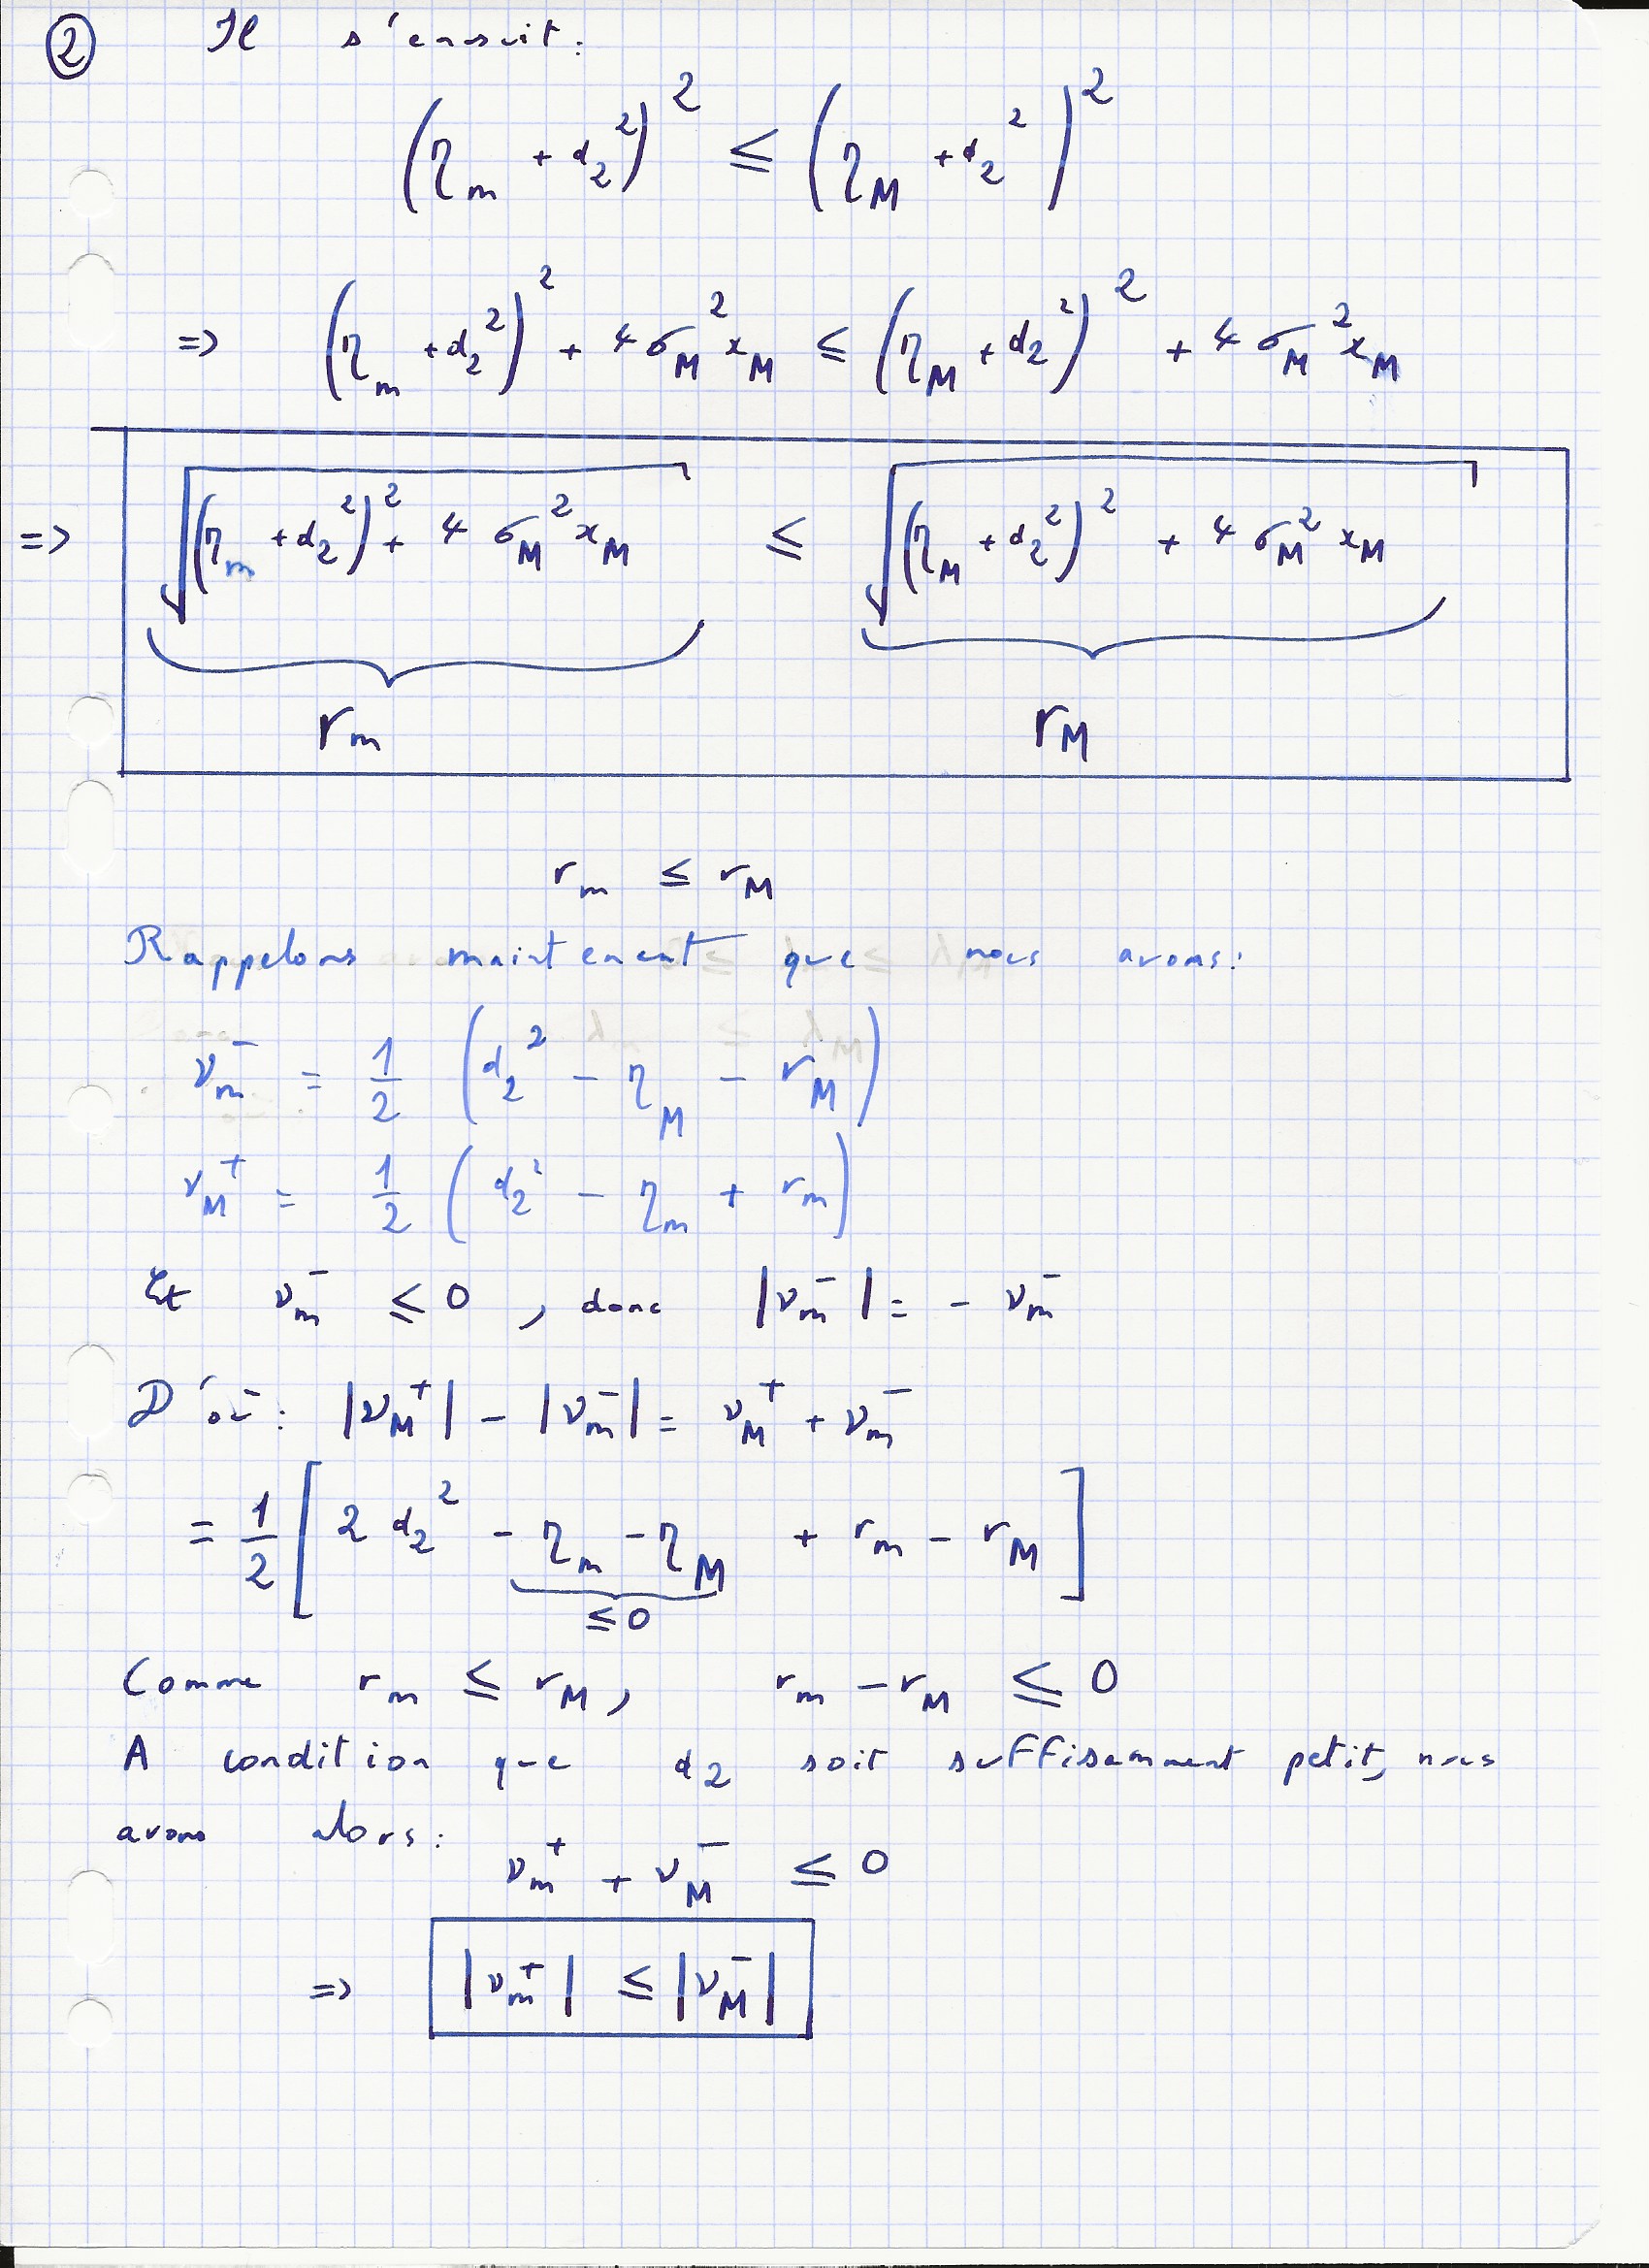 ② Il s'ensuit:
(η_m + d_2^2)^2 ≤ (η_M + d_2^2)^2
=> (η_m + d_2^2)^2 + 4 σ_M^2 x_M ≤ (η_M + d_2^2)^2 + 4 σ_M^2 x_M
=> √((η_m + d_2^2)^2 + 4 σ_M^2 x_M) ≤ √((η_M + d_2^2)^2 + 4 σ_M^2 x_M)
r_m r_M
r_m ≤ r_M
Rappelons maintenent que nous avons:
ν_m^- = 1/2 (d_2^2 - η_M - r_M)
ν_M^+ = 1/2 (d_2^2 - η_m + r_m)
Et ν_m^- ≤ 0, donc |ν_m^-| = - ν_m^-
D'où: |ν_M^+| - |ν_m^-| = ν_M^+ + ν_m^-
= 1/2 [2 d_2^2 - η_m - η_M + r_m - r_M]
≤ 0
Comme r_m ≤ r_M, r_m - r_M ≤ 0
A condition que d_2 soit suffisamment petit, nous
avons alors:
ν_m^+ + ν_M^- ≤ 0
=> |ν_m^+| ≤ |ν_M^-|